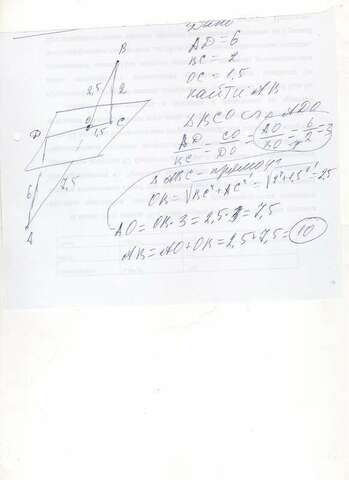 Дано
AD=6
BC=2
OC=1,5
найти AB
B
2,5
2
D
O
1,5
C
6
7,5
A
ΔBCO ~ ADO
AD/BC = CO/DO = AO/BO = 6/2 = 3
ΔABC - прямоуг
OB=√BC²+AC²=√2²+1,5²=2,5
AO=OB·3=2,5·3=7,5
AB=AO+OB=2,5+7,5=10